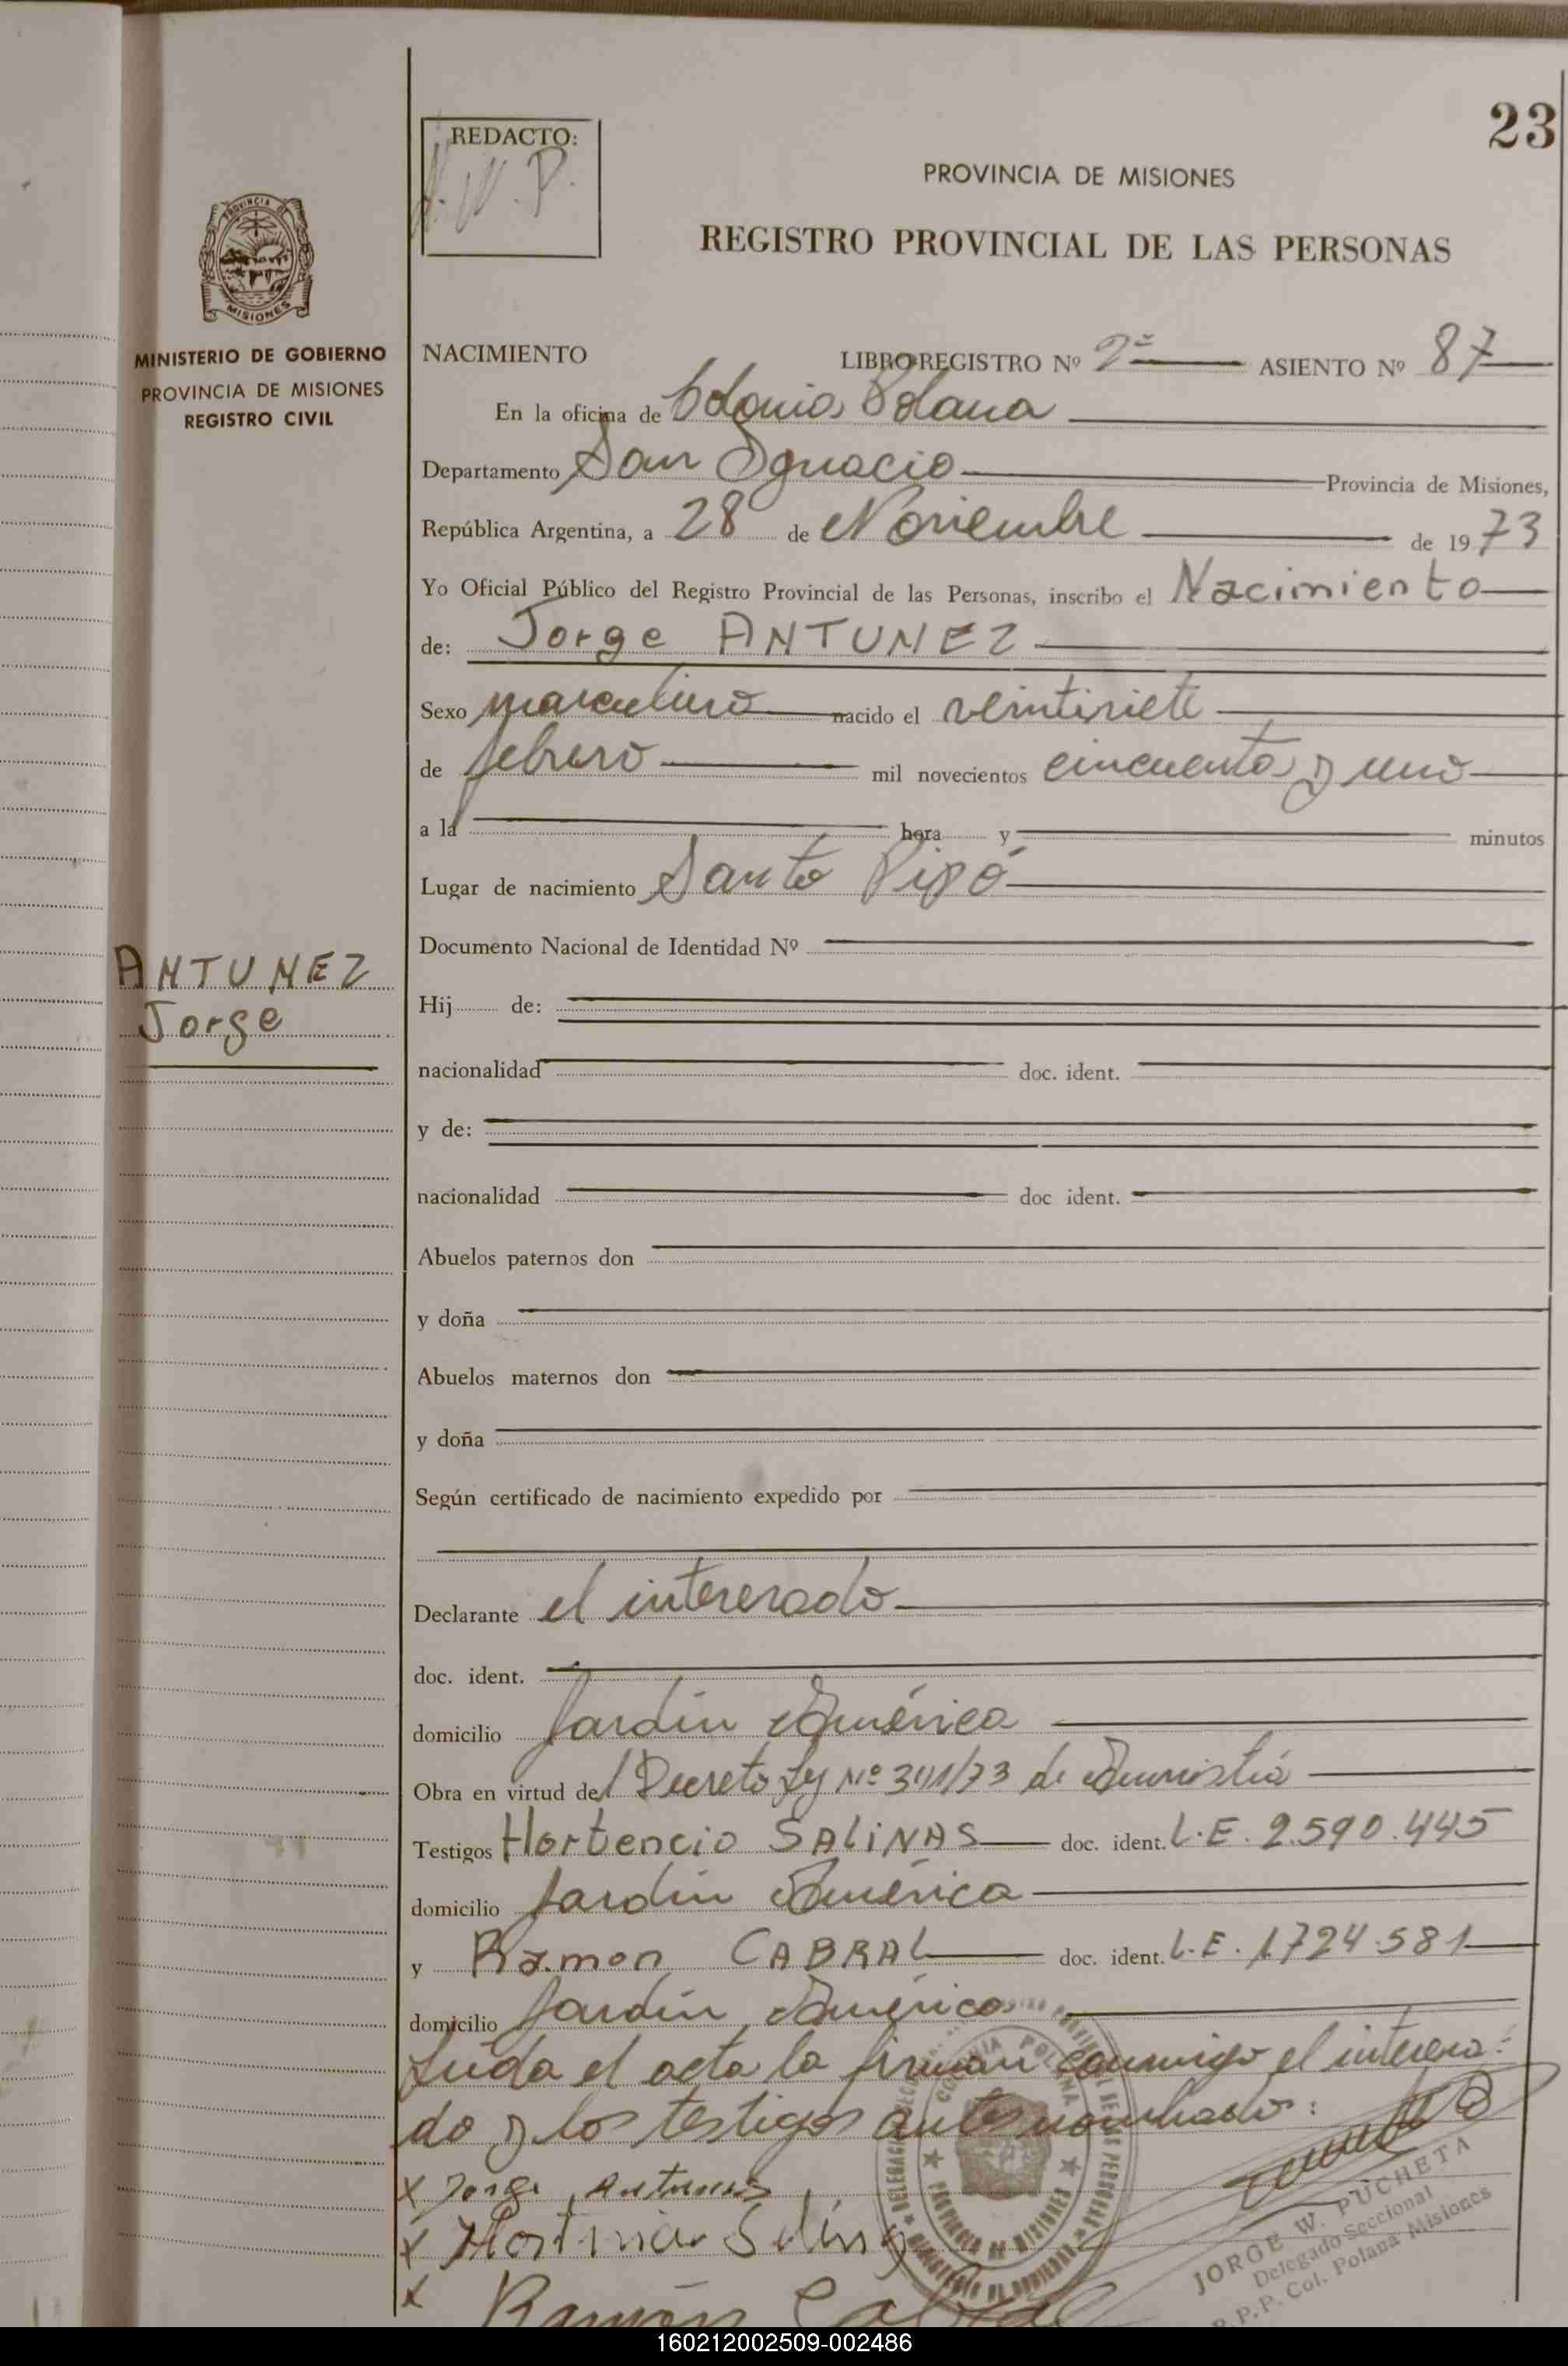 23
REDACTO:
PROVINCIA DE MISIONES
REGISTRO PROVINCIAL DE LAS PERSONAS
PROVINCIA DE
MISIONES
MINISTERIO DE GOBIERNO
PROVINCIA DE MISIONES
REGISTRO CIVIL
NACIMIENTO LIBRO REGISTRO Nº 2º ASIENTO Nº 87
En la oficina de Colonia Polana
Departamento San Ignacio Provincia de Misiones,
República Argentina, a 28 de Noviembre de 1973
Yo Oficial Público del Registro Provincial de las Personas, inscribo el Nacimiento
de: Jorge ANTUNEZ
Sexo masculino nacido el veintisiete
de febrero mil novecientos cincuenta y uno
a la hora y minutos
Lugar de nacimiento Santo Pipó
Documento Nacional de Identidad Nº
ANTUNEZ
Jorge
Hij de:
nacionalidad doc. ident.
y de:
nacionalidad doc ident.
Abuelos paternos don
y doña
Abuelos maternos don
y doña
Según certificado de nacimiento expedido por
Declarante el interesado
doc. ident.
domicilio Jardín América
Obra en virtud del Decreto Ley Nº 311/73 de Amnistía
Testigos Hortencio SALINAS doc. ident. L.E. 2.590.445
domicilio Jardín América
y Ramon CABRAL doc. ident. L.E. 1.724.581
domicilio Jardín América
Leída el acta la firman conmigo el interesa-
do y los testigos antes nombrados:
x Jorge Antunez
x
x Ramón Cabral
COLONIA POLANA
PROVINCIA DE MISIONES
JORGE W. PUCHETA
Delegado Seccional
R.P.P. Col. Polana Misiones
160212002509-002486